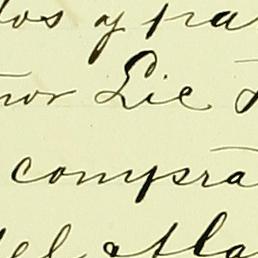 los y pa
nor Lic
compra
del atla